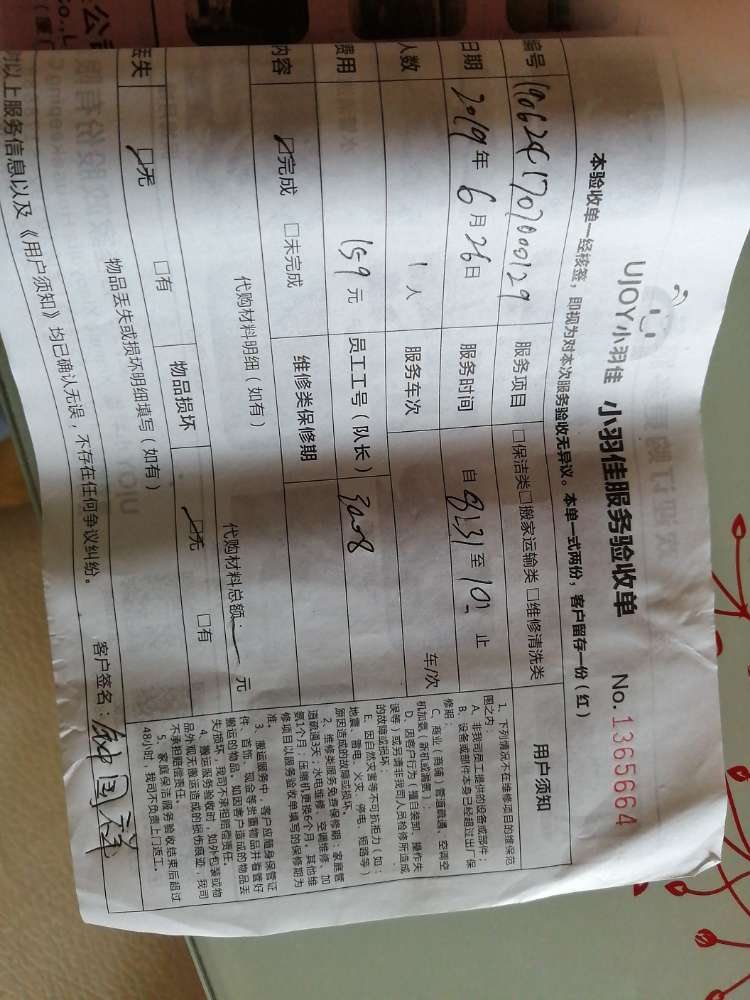 UJOY小羽佳 小羽佳服务验收单 No.1365664
本验收单一经核签，即视为对本次服务验收无异议。本单一式两份，客户留存一份（红）
编号 190624170700129 服务项目 □保洁类□搬家运输类 □维修清洗类
日期 2019年6月26日 服务时间 自 至 止
人数 1人 服务车次 车/次
费用 159元 员工工号（队长）
内容 ☑完成 □未完成 维修类保修期
代购材料明细（如有） 代购材料总额： 元
丢失 ☑无 □有 物品损坏 ☑无 □有
物品丢失或损坏明细填写（如有）
对以上服务信息以及《用户须知》均已确认无误，不存在任何争议纠纷。
客户签名：
用户须知
1、下列情况不在维修项目的维保范
围之内：
A、非我司员工提供的设备或部件；
B、设备或部件本身已经超过出厂保
修期；
C、商业（商铺）管道疏通、空调空
机加氨（新机或漏氨）；
D、因客户行为（擅自装卸、操作失
误等）或另请非我司人员检修所造成
的故障或损坏；
E、因自然灾害等不可抗拒力（如：
地震、雷电、火灾、停电、短路等）
原因造成的故障或损坏。
2、维修类服务免费保修期：家庭管
道疏通3天；水电维修、空调维修、加
氨1个月；压缩机更换6个月，其他维
修项目以服务验收单填写的保修期为
准。
3、搬运服务中，客户应随身保管证
件、首饰、现金等贵重物品并看管好
搬运的物品。如因客户造成的物品丢
失/损坏，我司不承担赔偿责任。
4、搬运服务验收时，如外包装或物
品外观无搬运造成的损伤痕迹，我司
不承担赔偿责任。
5、家庭保洁服务验收结束后超过
48小时，我司不负责上门返工。